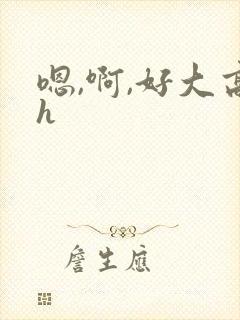 嗯,啊,好大高
h
詹生應